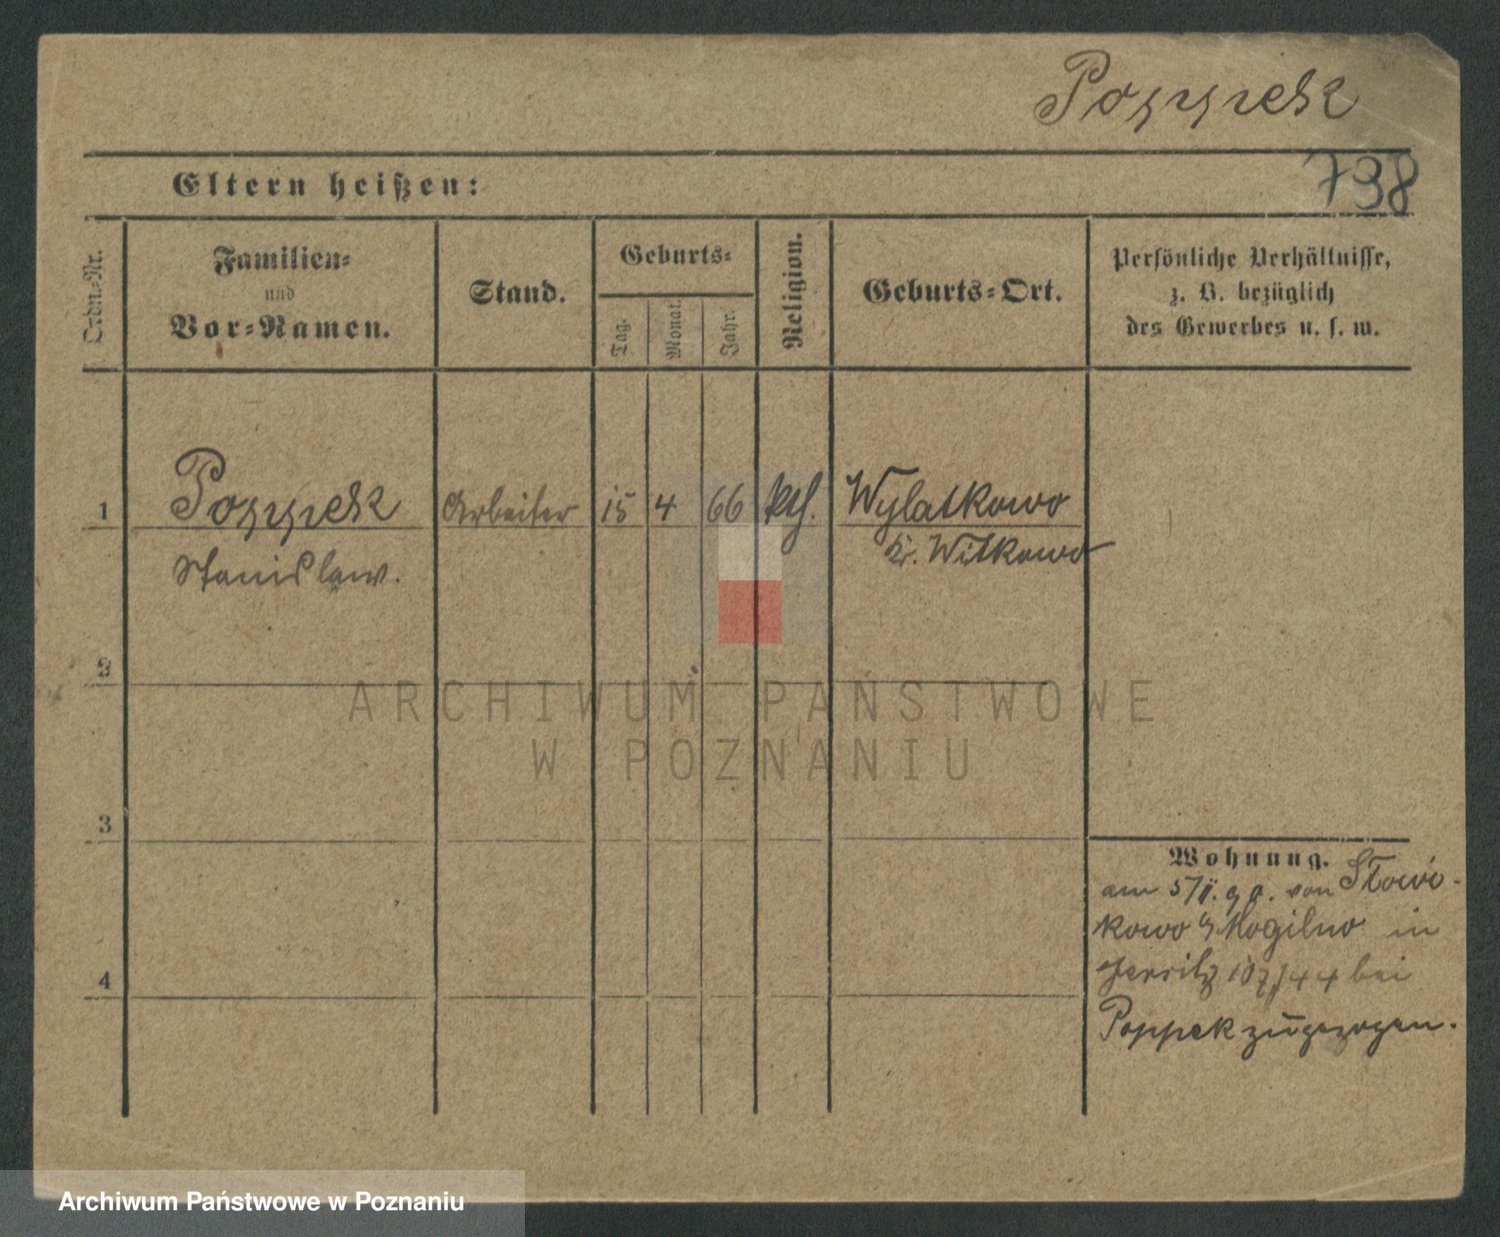 Poppek
738
Eltern heißen:
Ordn.-Nr.
Familien-
und
Vor-Namen.
Stand.
Geburts-
Tag.
Monat.
Jahr.
Religion.
Geburts-Ort.
Persönliche Verhältnisse,
z. B. bezüglich
des Gewerbes u. s. w.
1 Poppek Arbeiter 15 4 66 kth. Wylatkowo
Stanislaw. Kr. Witkowo
2
ARCHIWUM PAŃSTWOWE
W POZNANIU
3
Wohnung.
am 5/II. 90. von Słowi-
kowo Mogilno in
Jersitz bei
Poppek zugezogen.
4
Archiwum Państwowe w Poznaniu